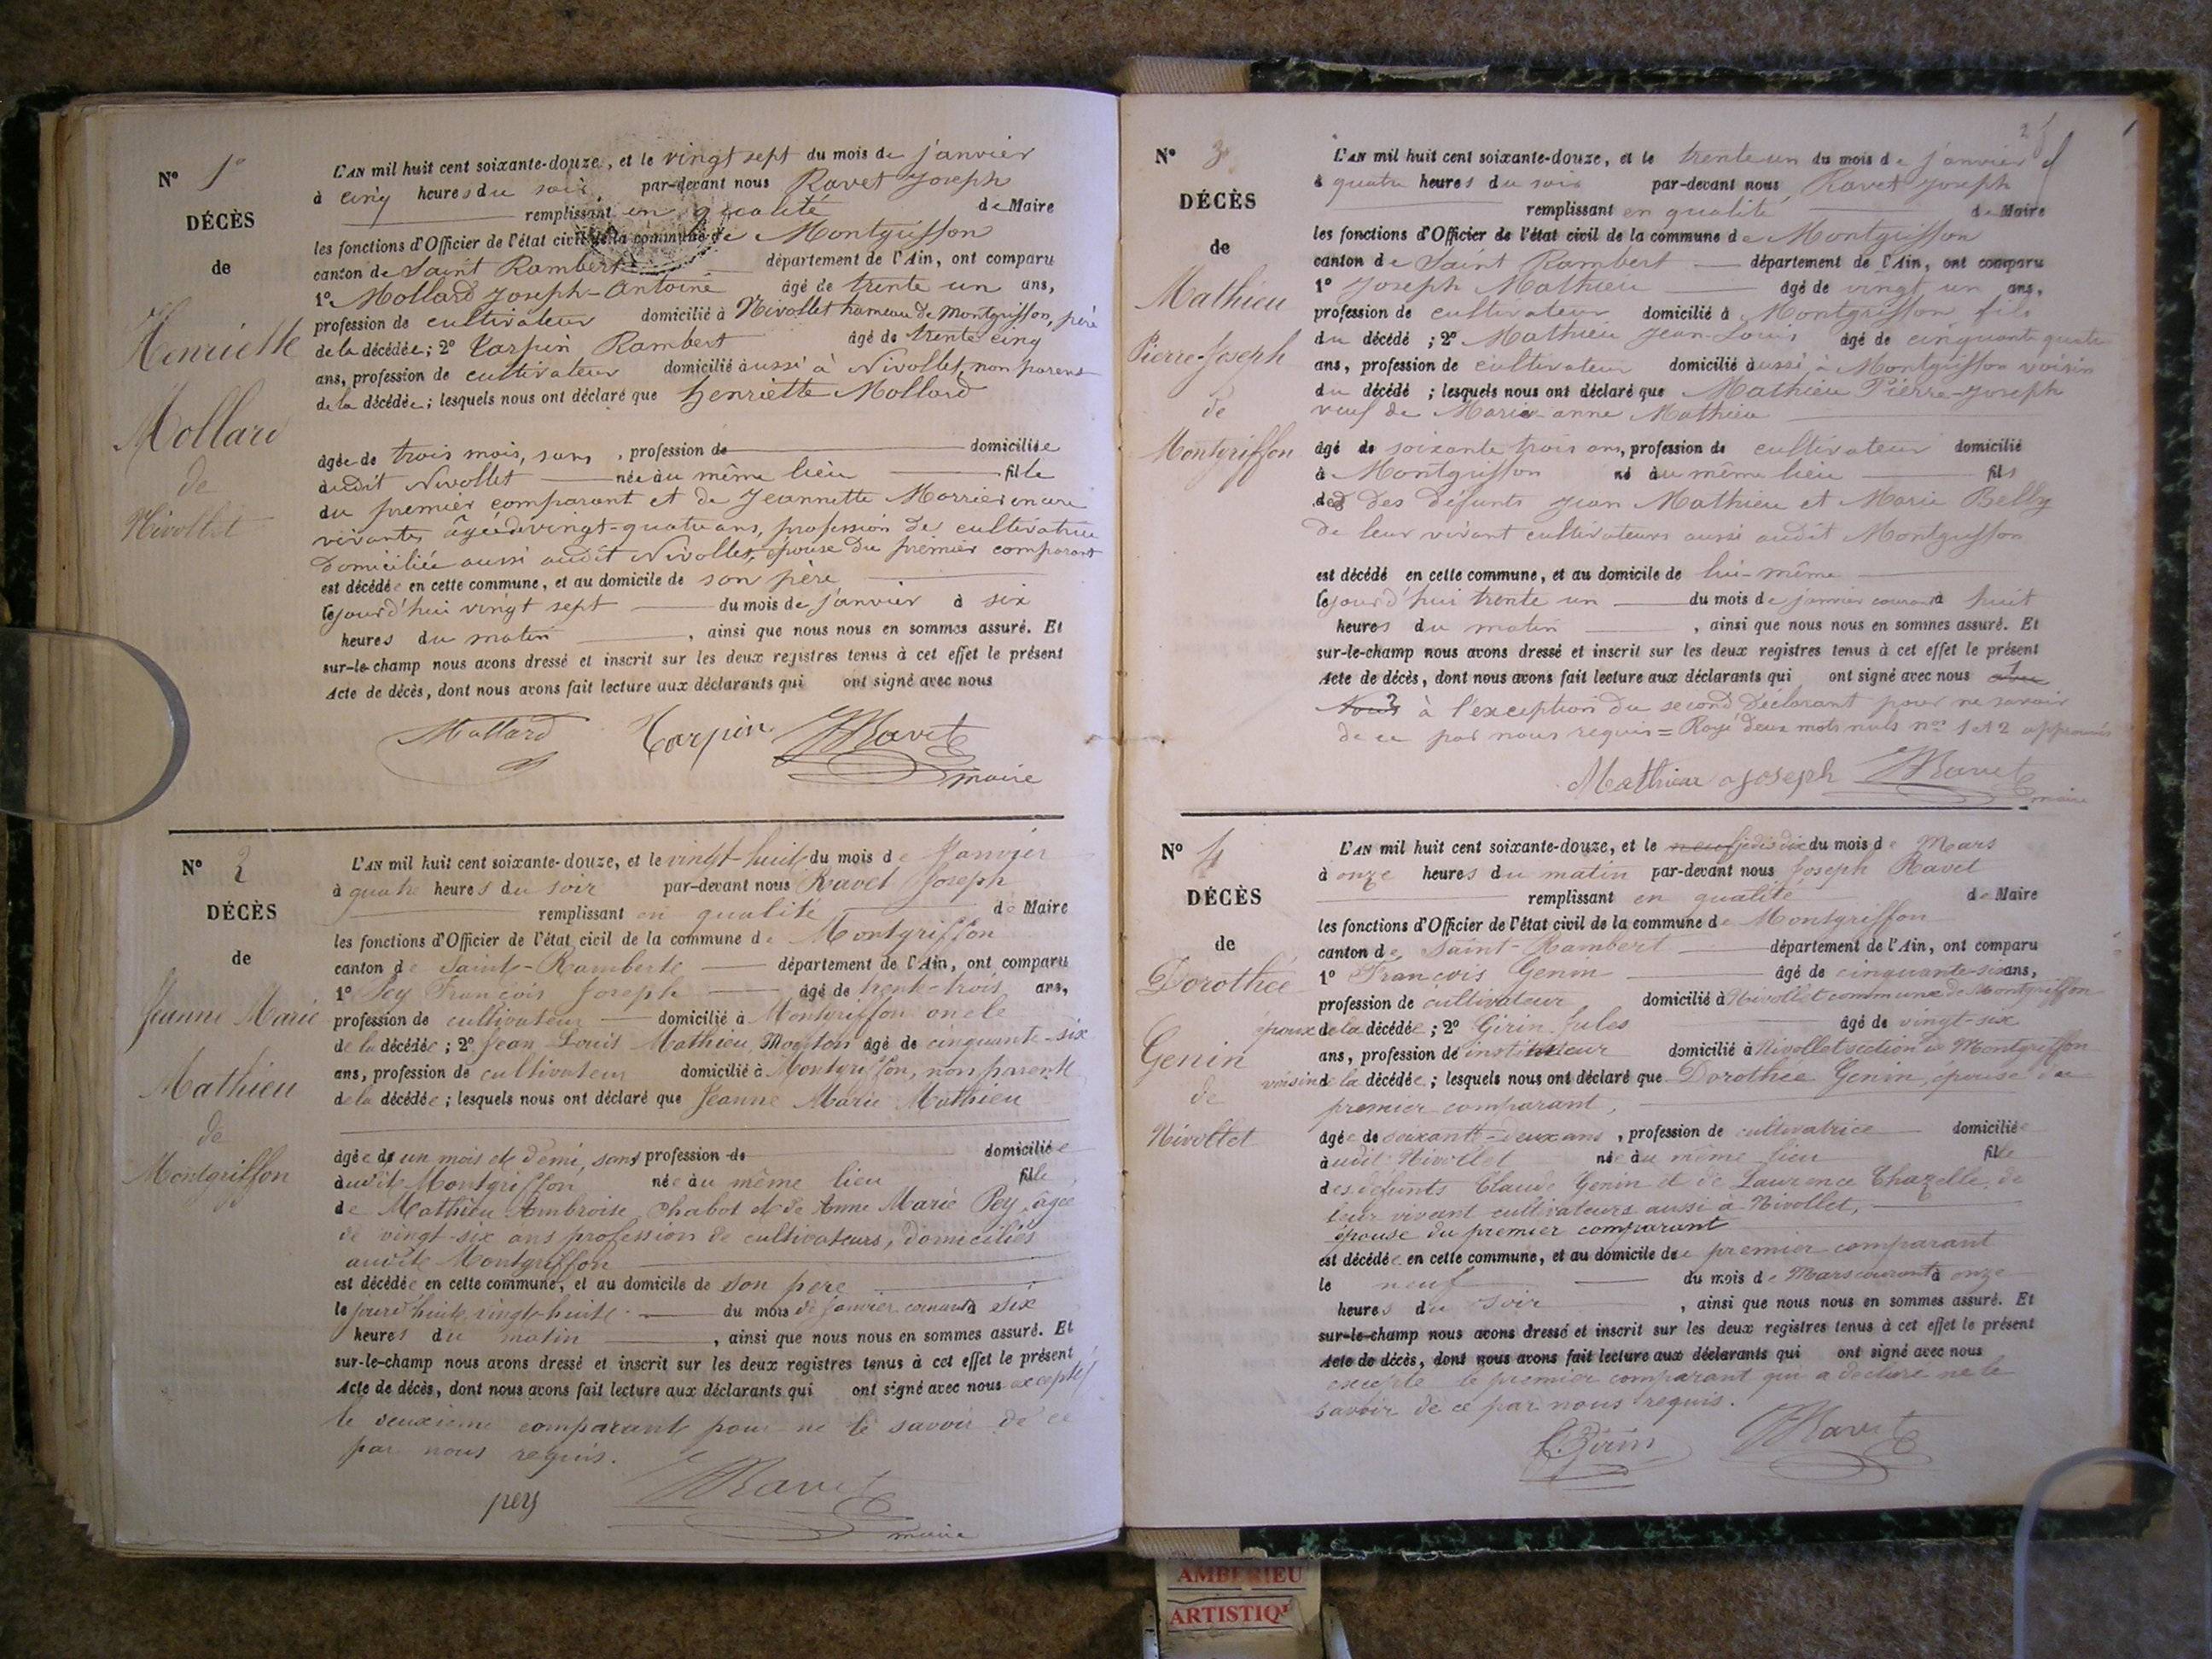 N° 1er
DÉCÈS
de
Henriette
Mollard
de
Nivollet
L'AN mil huit cent soixante-douze, et le vingt sept du mois de janvier
à cinq heures du soir par-devant nous Ravet Joseph
remplissant en qualité de Maire
les fonctions d'Officier de l'état civil de la commune de Montgriffon
canton de Saint Rambert département de l'Ain, ont comparu
1° Mollard Joseph-Antoine âgé de trente un ans,
profession de cultivateur domicilié à Nivollet hameau de Montgriffon, père
de la décédée; 2° Carpin Rambert âgé de trente cinq
ans, profession de cultivateur domicilié aussi à Nivollet, non parent
de la décédée; lesquels nous ont déclaré que henriette Mollard
âgée de trois mois, sans, profession de domiciliée
audit Nivollet née au même lieu fille
du premier comparant et de Jeannette encore
vivante, âgée de vingt-quatre ans, profession de cultivatrice
domiciliée aussi audit Nivollet, épouse du premier comparant
est décédée en cette commune, et au domicile de son père
le jourd'hui vingt sept du mois de janvier à six
heures du matin, ainsi que nous nous en sommes assuré. Et
sur-le-champ nous avons dressé et inscrit sur les deux registres tenus à cet effet le présent
Acte de décès, dont nous avons fait lecture aux déclarants qui ont signé avec nous
Mollard Carpin JRavet
maire
N° 2
DÉCÈS
de
Jeanne Marie
Mathieu
de
Montgriffon
L'AN mil huit cent soixante-douze, et le vingt-huit du mois de Janvier
à quatre heures du soir par-devant nous Ravet Joseph
remplissant en qualité de Maire
les fonctions d'Officier de l'état civil de la commune de Montgriffon
canton de Saint-Rambert département de l'Ain, ont comparu
1° Pey François Joseph âgé de trente-trois ans,
profession de cultivateur domicilié à Montgriffon oncle
de la décédée; 2° Jean Louis Mathieu âgé de cinquante-six
ans, profession de cultivateur domicilié à Montgriffon, non parent
de la décédée; lesquels nous ont déclaré que Jeanne Marie Mathieu
âgée de un mois et demi, sans profession de domiciliée
audit Montgriffon née au même lieu fille
de Mathieu Ambroise Chabot et de Anne Marie Pey, âgée
de vingt-six ans profession de cultivateurs, domiciliés
audit Montgriffon
est décédée en cette commune, et au domicile de son père
le jourd'huit vingt-huit du mois de Janvier courant à six
heures du matin, ainsi que nous nous en sommes assuré. Et
sur-le-champ nous avons dressé et inscrit sur les deux registres tenus à cet effet le présent
Acte de décès, dont nous avons fait lecture aux déclarants qui ont signé avec nous excepté
le deuxième comparant pour ne le savoir de ce
par nous requis.
pey JRavet
maire
N° 3
DÉCÈS
de
Mathieu
Pierre-Joseph
de
Montgriffon
L'AN mil huit cent soixante-douze, et le trente un du mois de janvier
à quatre heures du soir par-devant nous Ravet Joseph
remplissant en qualité de Maire
les fonctions d'Officier de l'état civil de la commune de Montgriffon
canton de Saint Rambert département de l'Ain, ont comparu
1° Joseph Mathieu âgé de vingt un ans,
profession de cultivateur domicilié à Montgriffon fils
du décédé; 2° Mathieu Jean-Louis âgé de cinquante quatre
ans, profession de cultivateur domicilié aussi à Montgriffon voisin
du décédé; lesquels nous ont déclaré que Mathieu Pierre-Joseph
veuf de Marie-anne Mathieu
âgé de soixante trois ans, profession de cultivateur domicilié
à Montgriffon né au même lieu fils
des défunts Jean Mathieu et Marie Belly
de leur vivant cultivateurs aussi audit Montgriffon
est décédé en cette commune, et au domicile de lui-même
le jourd'hui trente un du mois de janvier courant à huit
heures du matin, ainsi que nous nous en sommes assuré. Et
sur-le-champ nous avons dressé et inscrit sur les deux registres tenus à cet effet le présent
Acte de décès, dont nous avons fait lecture aux déclarants qui ont signé avec nous avec
nous à l'exception du second déclarant pour ne savoir
de ce par nous requis = Rayé deux mots nuls nos 1 et 2 approuvés
Mathieu Joseph JRavet
maire
N° 4
DÉCÈS
de
Dorothée
Genin
de
Nivollet
L'AN mil huit cent soixante-douze, et le neuf dix du mois de Mars
à onze heures du matin par-devant nous Joseph Ravet
remplissant en qualité de Maire
les fonctions d'Officier de l'état civil de la commune de Montgriffon
canton de Saint-Rambert département de l'Ain, ont comparu
1° François Genin âgé de cinquante-six ans,
profession de cultivateur domicilié à Nivollet commune de Montgriffon
époux de la décédée; 2° Girin Jules âgé de vingt-six
ans, profession de instituteur domicilié à Nivollet section de Montgriffon
voisin de la décédée; lesquels nous ont déclaré que Dorothée Genin, épouse du
premier comparant,
âgée de soixante-deux ans, profession de cultivatrice domiciliée
audit Nivollet née au même lieu fille
des défunts Claude Genin et de Laurence Chazelle, de
leur vivant cultivateurs aussi à Nivollet,
épouse du premier comparant
est décédée en cette commune, et au domicile du premier comparant
le neuf du mois de Mars courant à onze
heures du soir, ainsi que nous nous en sommes assuré. Et
sur-le-champ nous avons dressé et inscrit sur les deux registres tenus à cet effet le présent
Acte de décès, dont nous avons fait lecture aux déclarants qui ont signé avec nous
excepté le premier comparant qui a déclaré ne le
savoir de ce par nous requis.
Girin JRavet
AMBERIEU
ARTISTIQ